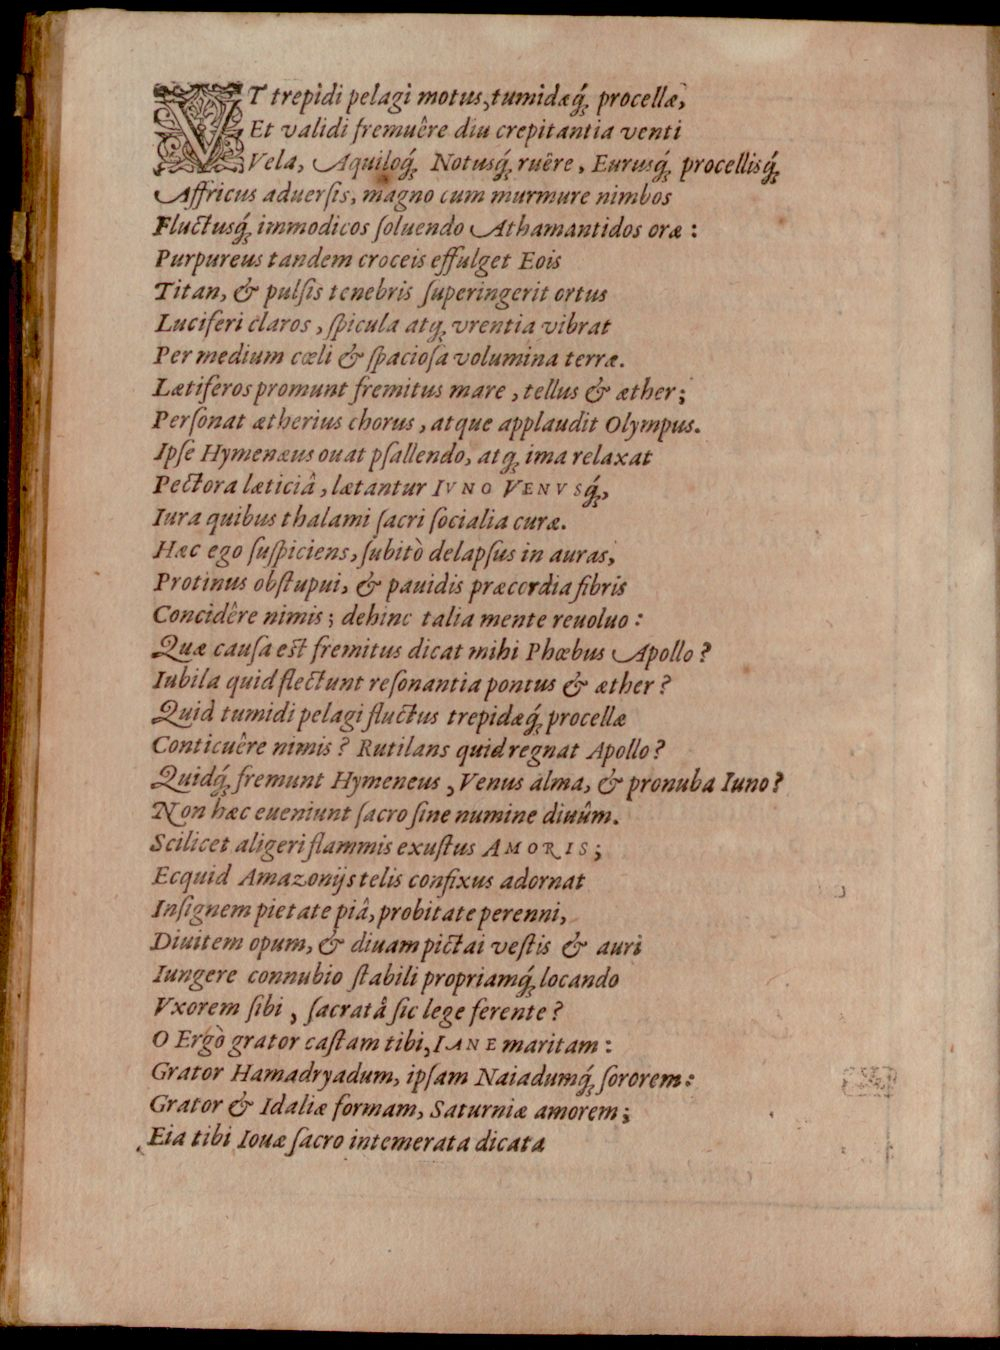 VT trepidi pelagi motus, tumidæq́; procellæ,
Et validi fremuêre diu crepitantia venti
Vela, Aquiloq́; Notusq́; ruêre, Eurusq́; procellisq́;
Affricus aduerſis, magno cum murmure nimbos
Fluctusq́; immodicos ſoluendo Athamantidos oræ:
Purpureus tandem croceis effulget Eois
Titan, & pulſis tenebris ſuperingerit ortus
Luciferi claros, ſpicula atq; vrentia vibrat
Per medium cœli & ſpacioſa volumina terræ.
Lætiferos promunt fremitus mare, tellus & æther;
Perſonat ætherius chorus, atque applaudit Olympus.
Ipſe Hymenæus ouat pſallendo, atq; ima relaxat
Pectora læticiâ, lætantur IVNO VENVSq́;,
Iura quibus thalami ſacri ſocialia curæ.
Hæc ego ſuſpiciens, ſubitò delapſus in auras,
Protinus obſtupui, & pauidis præcordia fibris
Concidêre nimis; dehinc talia mente reuoluo:
Quæ cauſa eſt fremitus dicat mihi Phœbus Apollo?
Iubila quid flectunt reſonantia pontus & æther?
Quid tumidi pelagi fluctus trepidæq́; procellæ
Conticuêre nimis? Rutilans quid regnat Apollo?
Quidq́; fremunt Hymeneus, Venus alma, & pronuba Iuno?
Non hæc eueniunt ſacro ſine numine diuûm.
Scilicet aligeri flammis exuſtus AMORIS;
Ecquid Amazonijs telis confixus adornat
Inſignem pietate piâ, probitate perenni,
Diuitem opum, & diuam pictai veſtis & auri
Iungere connubio ſtabili propriamq́; locando
Vxorem ſibi, ſacratâ ſic lege ferente?
O Ergò grator caſtam tibi, IANE maritam:
Grator Hamadryadum, ipſam Naiadumq́; ſororem:
Grator & Idaliæ formam, Saturniæ amorem;
Eia tibi Iouæ ſacro intemerata dicata